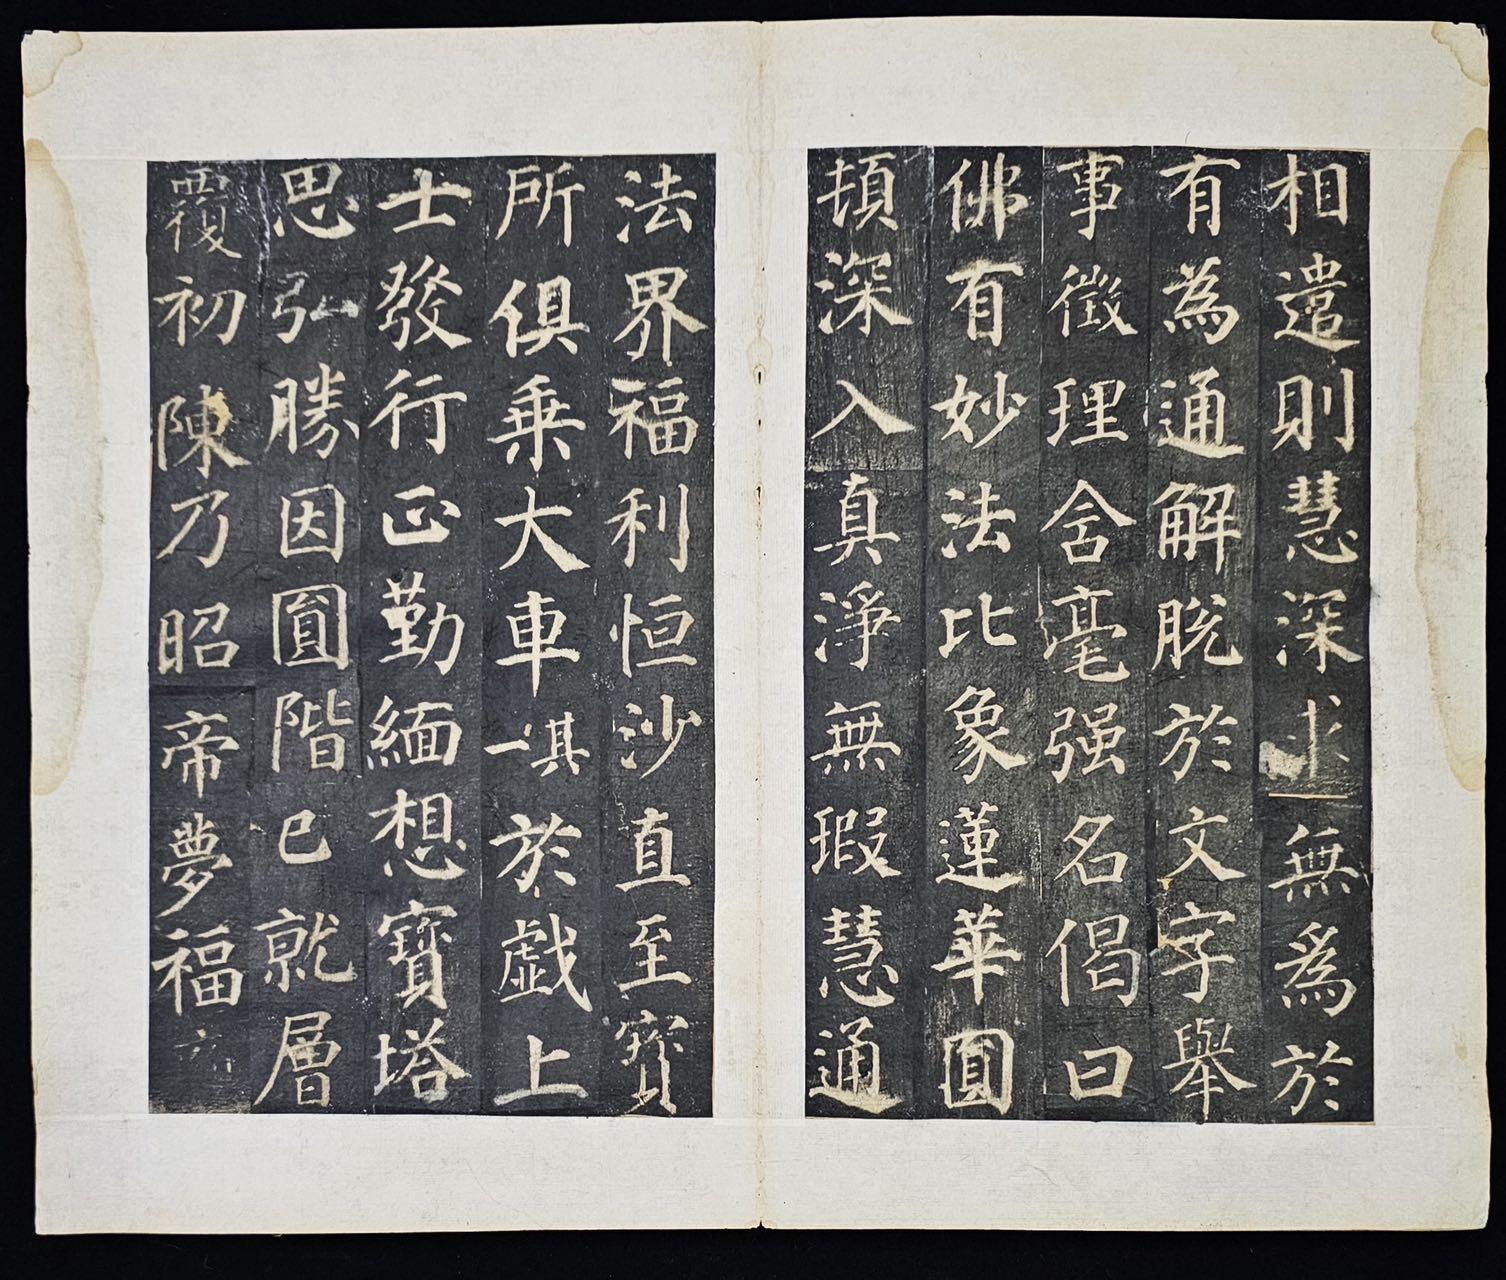 相遣則慧深求無爲於
有為通解脫於文字舉
事徵理含毫强名偈曰
佛有妙法比象蓮華圓
頓深入真淨無瑕慧通
法界福利恒沙直至寶
所俱乗大車其一於戲上
士發行正勤緬想寶塔
思弘勝因圓階已就層
覆初陳乃昭帝夢福